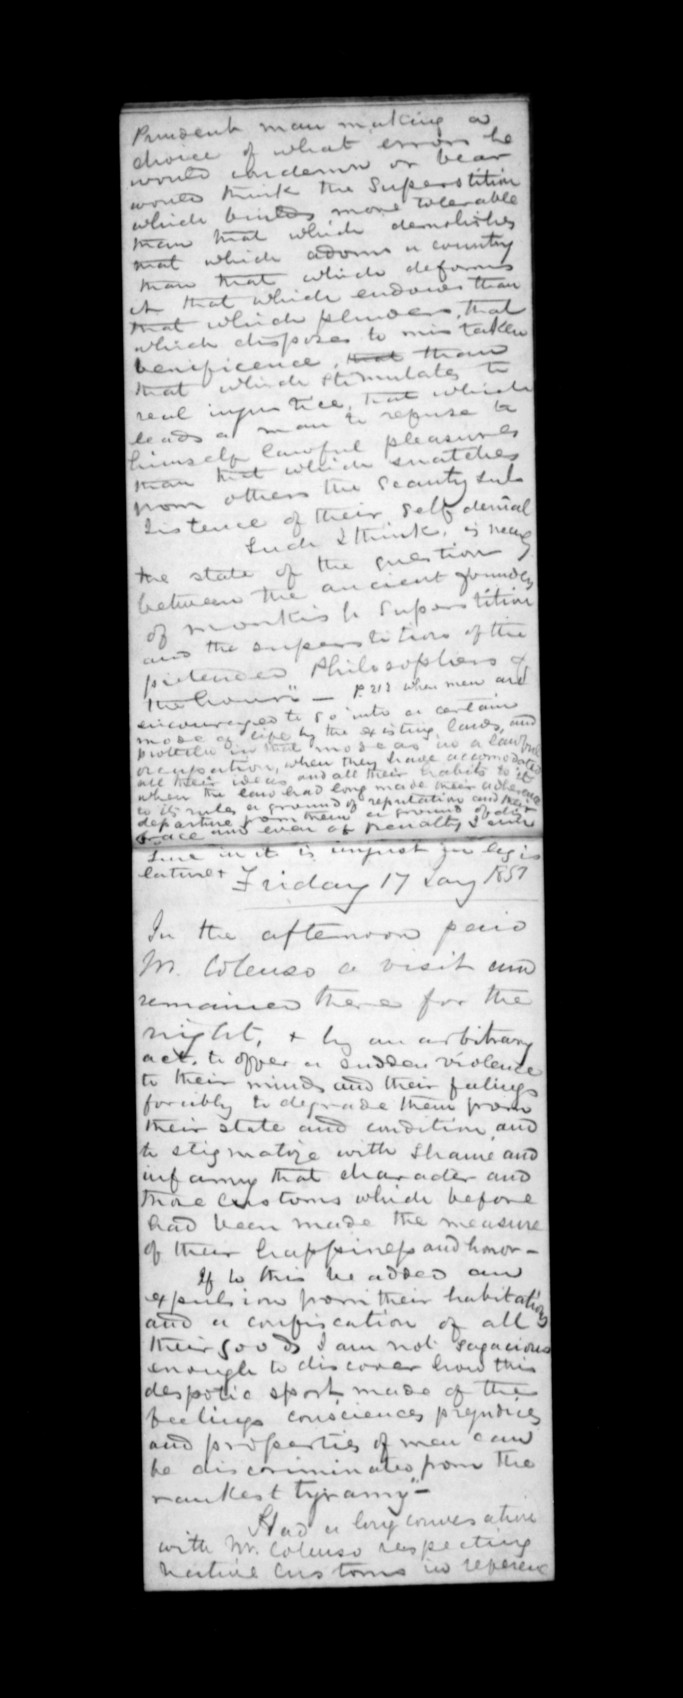 Prudent man making a
choice of what errors he
would condemn or bear
would think the Superstition
which builds more tolerable
than that which demolishes
that which adorns a country
than that which deforms
it that which endows than
that which plunders, that
which disposes to mistaken
benificence, that than
that which stimulates to
real injustice, that which
leads a man to refuse to
himself lawful pleasures
than that which snatches
from others the scanty sub
sistence of their self denial
Such I think, is nearly
the state of the question
between the ancient founders
of monkish Superstition
and the superstition of the
pretended Philosophers of
the hour" — P. 212 when men are
encouraged to go into a certain
mode of life by the existing laws, and
protected in that mode as in a lawful
occupation, when they have accomodated
all their ideas and all their habits to it
when the law had long made their adherence
to its rules a ground of reputation and their
departure from them a ground of dis
grace and even of penalty I am
sure in it is unjust in legis
lature +
Friday 17 Jany 1851
In the afternoon paid
Mr. Colenso a visit and
remained there for the
night, + by an arbitrary
act. to offer a sudden violence
to their minds and their feelings
forcibly to degrade them from
their state and condition, and
to stigmatize with shame and
infamy that character and
those customs which before
had been made the measure
of their happiness and honor —
If to this be added an
expulsion from their habitations
and a confiscation of all
their goods I am not sagacious
enough to discover how this
despotic sport made of the
feelings consciences prejudices
and properties of men can
be discriminated from the
rankest tyranny" —
Had a long conversation
with Mr. Colenso respecting
Native Customs in referenc